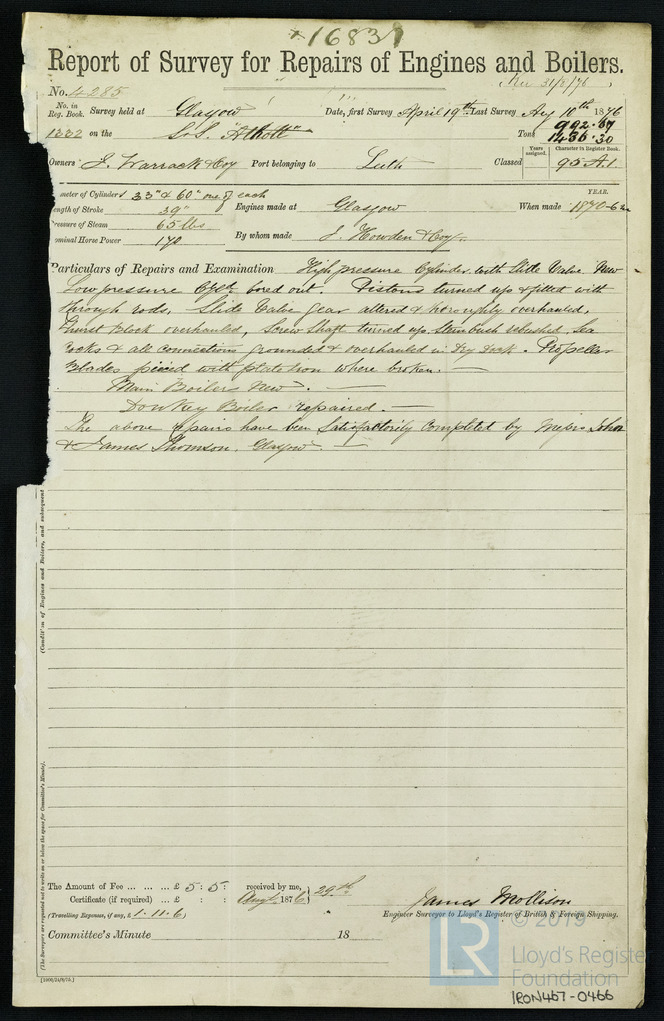 16839
Report of Survey for Repairs of Engines and Boilers.
No. 4285 Rec 31/8/76
No. in Reg. Book. Survey held at Glasgow Date, first Survey April 19th Last Survey Aug 10th 1876
1332 on the S.S. "Athole" Tons 992.67 1436.30
Owners J. Warrack & Coy Port belonging to Leith Classed Years assigned. Character in Register Book. 95 A.1.
meter of Cylinders 33" & 60" one of each YEAR.
ength of Stroke 39" Engines made at Glasgow When made 1870-6 m
ressure of Steam 65 lbs
ominal Horse Power 170 By whom made J. Howden & Coy.
Particulars of Repairs and Examination High pressure Cylinder with Slide Valve New
Low pressure Cyldr bored out. Pistons turned up & fitted with
through rods, Slide Valve Gear altered & thoroughly overhauled,
Thurst Block overhauled, Screw Shaft turned up Sternbush rebushed, Sea
Cocks & all connections grounded & overhauled in Dry Dock. Propeller
Blades pieced with plate iron where broken.
Main Boilers New.
Donkey Boiler repaired.
The above repairs have been Satisfactorily Completed by Messrs John
& James Thomson, Glasgow.
(Condition of Engines and Boilers, and subsequent
(The Surveyors are requested not to write on or below the space for Committee's Minute).
The Amount of Fee ... ... ... £ 5 : 5 : received by me,
Certificate (if required) ... £ : : Augt 1876 29th
(Travelling Expenses, if any, £ 1. 11. 6)
James Mollison
Engineer Surveyor to Lloyd's Register of British & Foreign Shipping.
Committee's Minute 18
© 2019
LR Lloyd's Register
Foundation
IRON467-0466